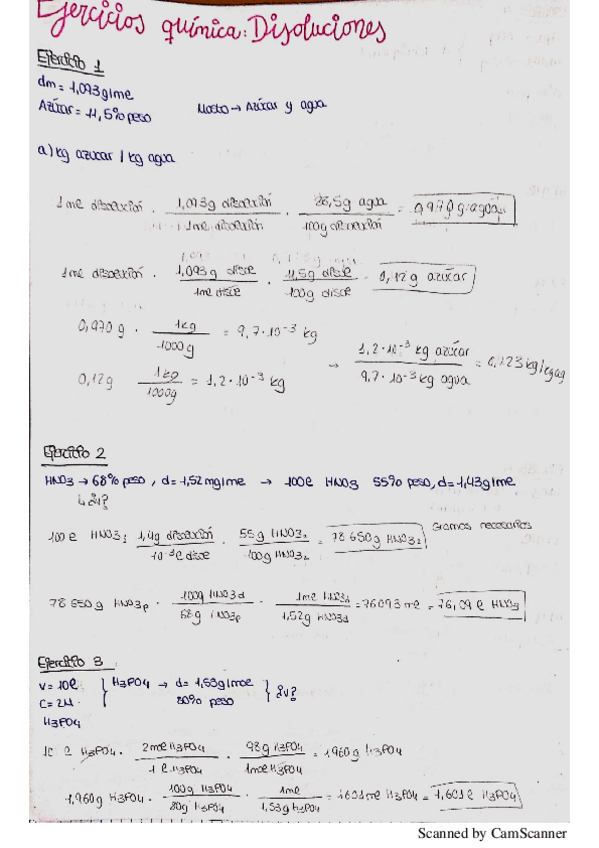 Ejercicios química: Disoluciones
Ejercicio 1
dm = 1,093 g/ml
Azúcar = 11,5% peso Mosto → Azúcar y agua
a) kg azucar / kg agua
1 ml disolución · 1,093 g disolución / 1 ml disolución · 88,5 g agua / 100 g disolución = 0,970 g agua
1 ml disolución · 1,093 g disol / 1 ml disol · 11,5 g / 100 g disol = 0,12 g azúcar
0,970 g · 1 kg / 1000 g = 9,7·10⁻³ kg
0,12 g 1 kg / 1000 g = 1,2·10⁻³ kg → 1,2·10⁻³ kg azúcar / 9,7·10⁻³ kg agua = 0,123 kg/kg ag
Ejercicio 2
HNO3 → 68% peso, d = 1,52 mg/ml → 100 l HNO3 55% peso, d = 1,43 g/ml
↳ ¿v?
100 l HNO3 · 1,43 g disolución / 10⁻³ l disol · 55 g HNO3 / 100 g HNO3 = 78 650 g HNO3 Gramos necesarios
78 650 g HNO3p · 100 g HNO3d / 68 g HNO3p · 1 ml HNO3 / 1,52 g HNO3d = 76093 ml = 76,09 l HNO3
Ejercicio 3
V = 10 l } H3PO4 → d = 1,53 g/ml } ¿v?
C = 2M 80% peso
H3PO4
10 l H3PO4 · 2 mol H3PO4 / 1 l H3PO4 · 98 g H3PO4 / 1 mol H3PO4 = 1960 g H3PO4
1,960 g H3PO4 · 100 g H3PO4 / 80 g H3PO4 · 1 ml / 1,53 g H3PO4 = 1601 ml H3PO4 = 1,601 l H3PO4
Scanned by CamScanner